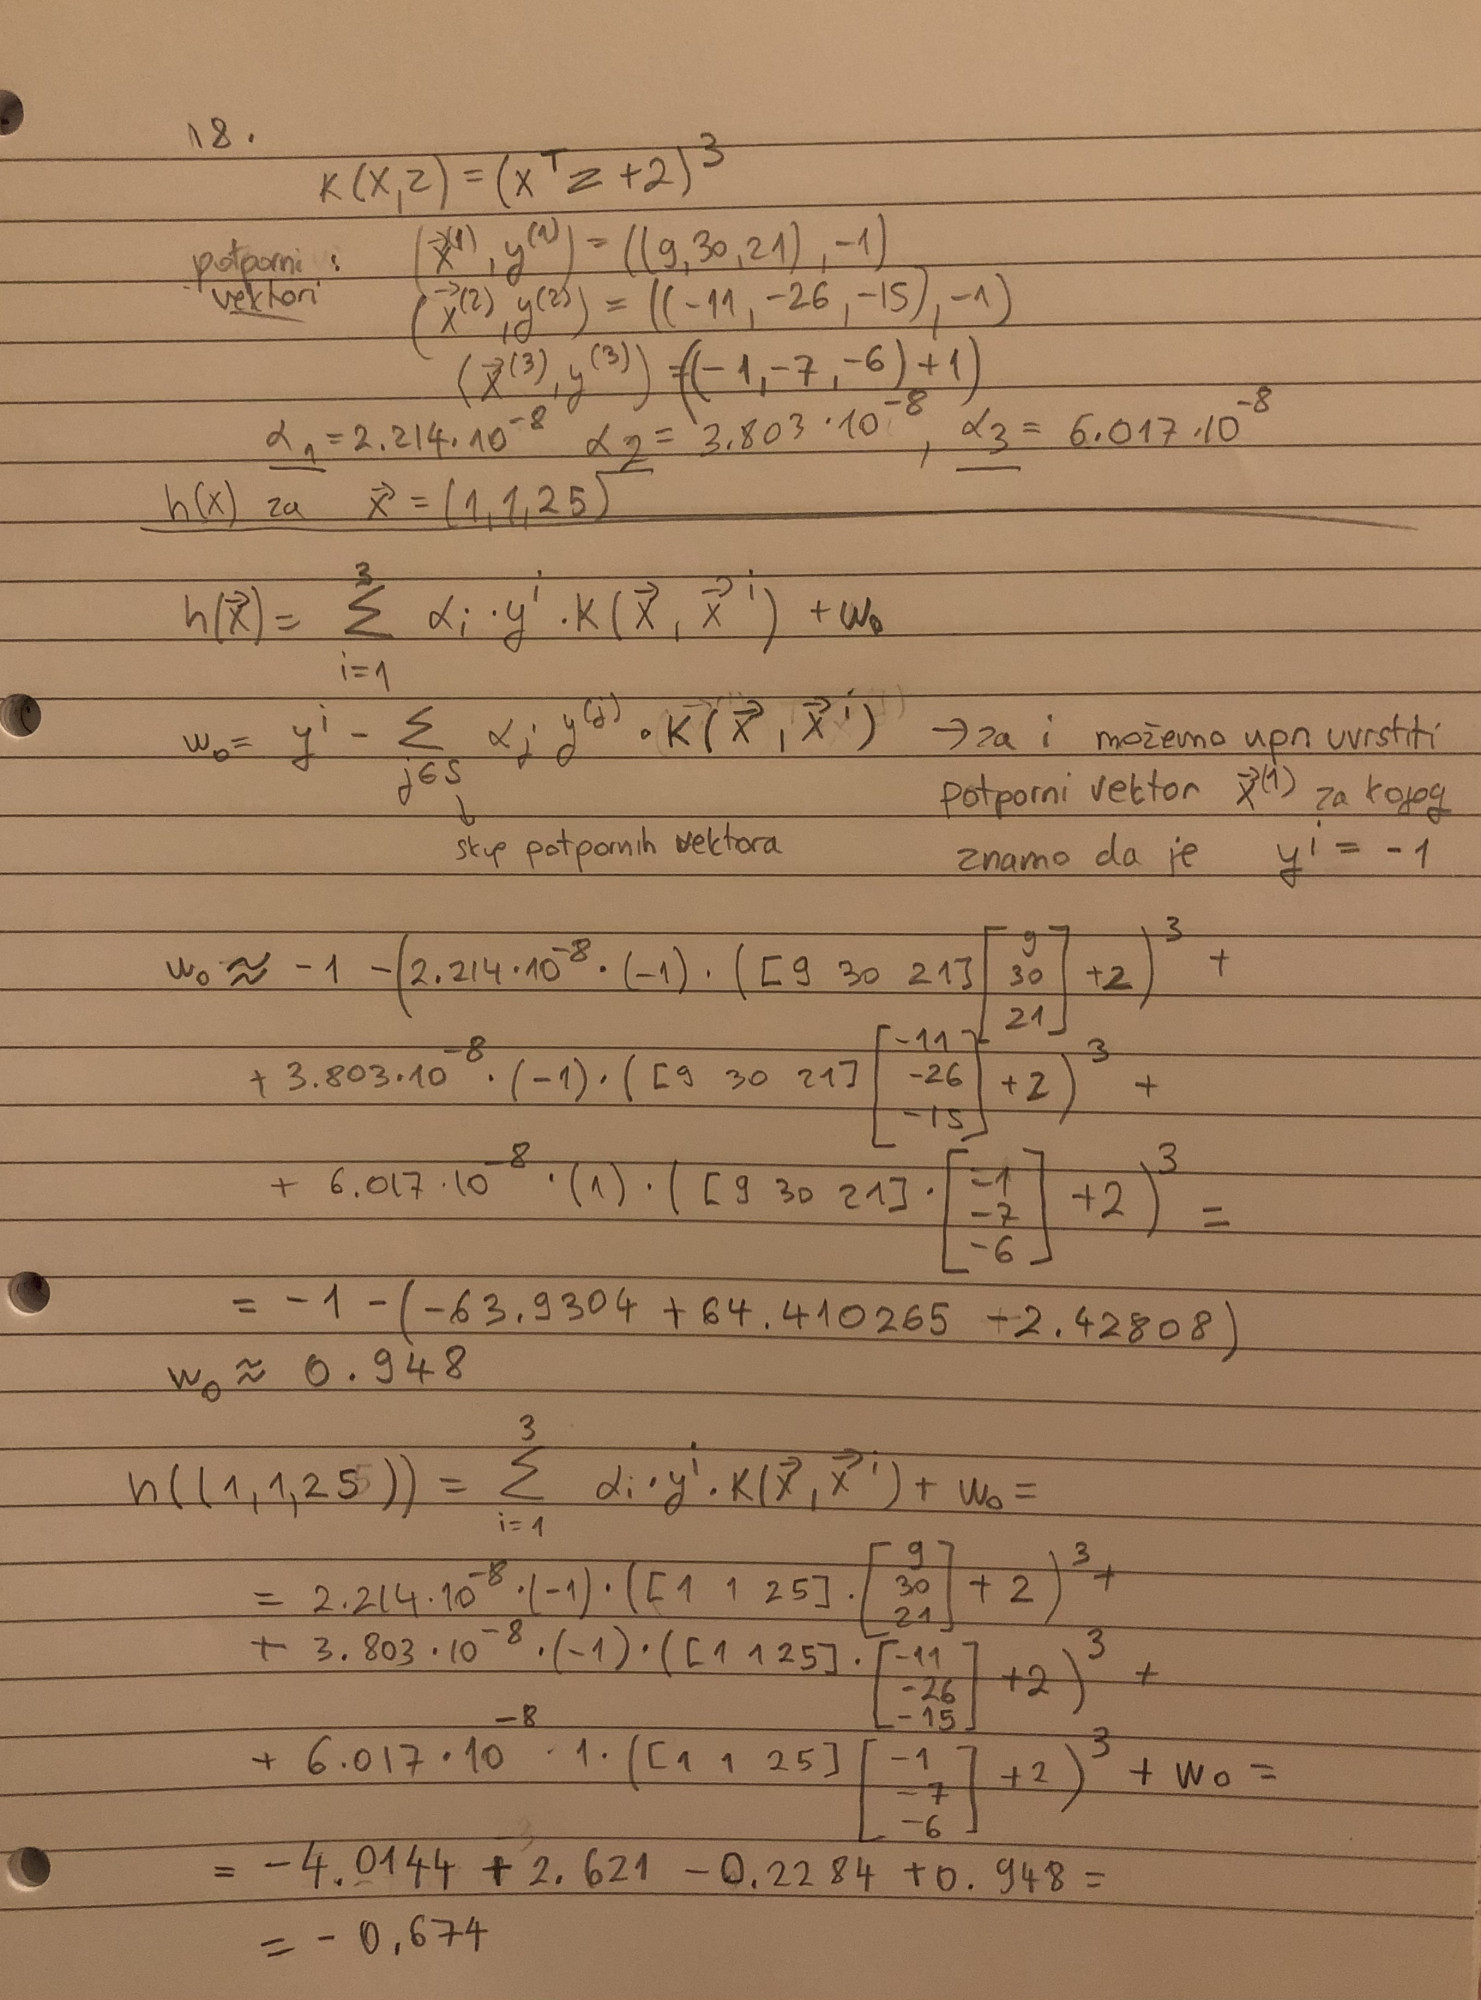 18.
K(x,z) = (xᵀz +2)³
potporni : (x⃗⁽¹⁾, y⁽¹⁾) = ((9,30,21), -1)
vektori (x⃗⁽²⁾, y⁽²⁾) = ((-11, -26, -15), -1)
(x⃗⁽³⁾, y⁽³⁾) = ((-1, -7, -6) +1)
α₁ = 2.214·10⁻⁸ α₂ = 3.803·10⁻⁸, α₃ = 6.017·10⁻⁸
h(x) za x⃗ = (1,1,25)
h(x⃗) = Σ_{i=1}^{3} αᵢ · yⁱ · K(x⃗, x⃗ⁱ) + w₀
w₀ = yⁱ - Σ_{j∈S} αⱼ y⁽ʲ⁾ · K(x⃗, x⃗ⁱ) → za i možemo upr uvrstiti
potporni vektor x⃗⁽¹⁾ za kojeg
skup potpornih vektora
znamo da je yⁱ = -1
w₀ ≈ -1 -(2.214·10⁻⁸ · (-1) · ([9 30 21] [9 30 21] +2)³ +
+ 3.803·10⁻⁸ · (-1) · ([9 30 21] [-11 -26 -15] +2)³ +
+ 6.017·10⁻⁸ · (1) · ([9 30 21] · [-1 -7 -6] +2)³ =
= -1 -(-63.9304 + 64.410265 -2.42808)
w₀ ≈ 0.948
h((1,1,25)) = Σ_{i=1}^{3} αᵢ · yⁱ · K(x⃗, x⃗ⁱ) + w₀ =
= 2.214·10⁻⁸ · (-1) · ([1 1 25] · [9 30 21] + 2)³ +
+ 3.803·10⁻⁸ · (-1) · ([1 1 25] · [-11 -26 -15] +2)³ +
+ 6.017·10⁻⁸ · 1 · ([1 1 25] [-1 -7 -6] +2)³ + w₀ =
= -4.0144 + 2.621 -0.2284 +0.948 =
= -0.674